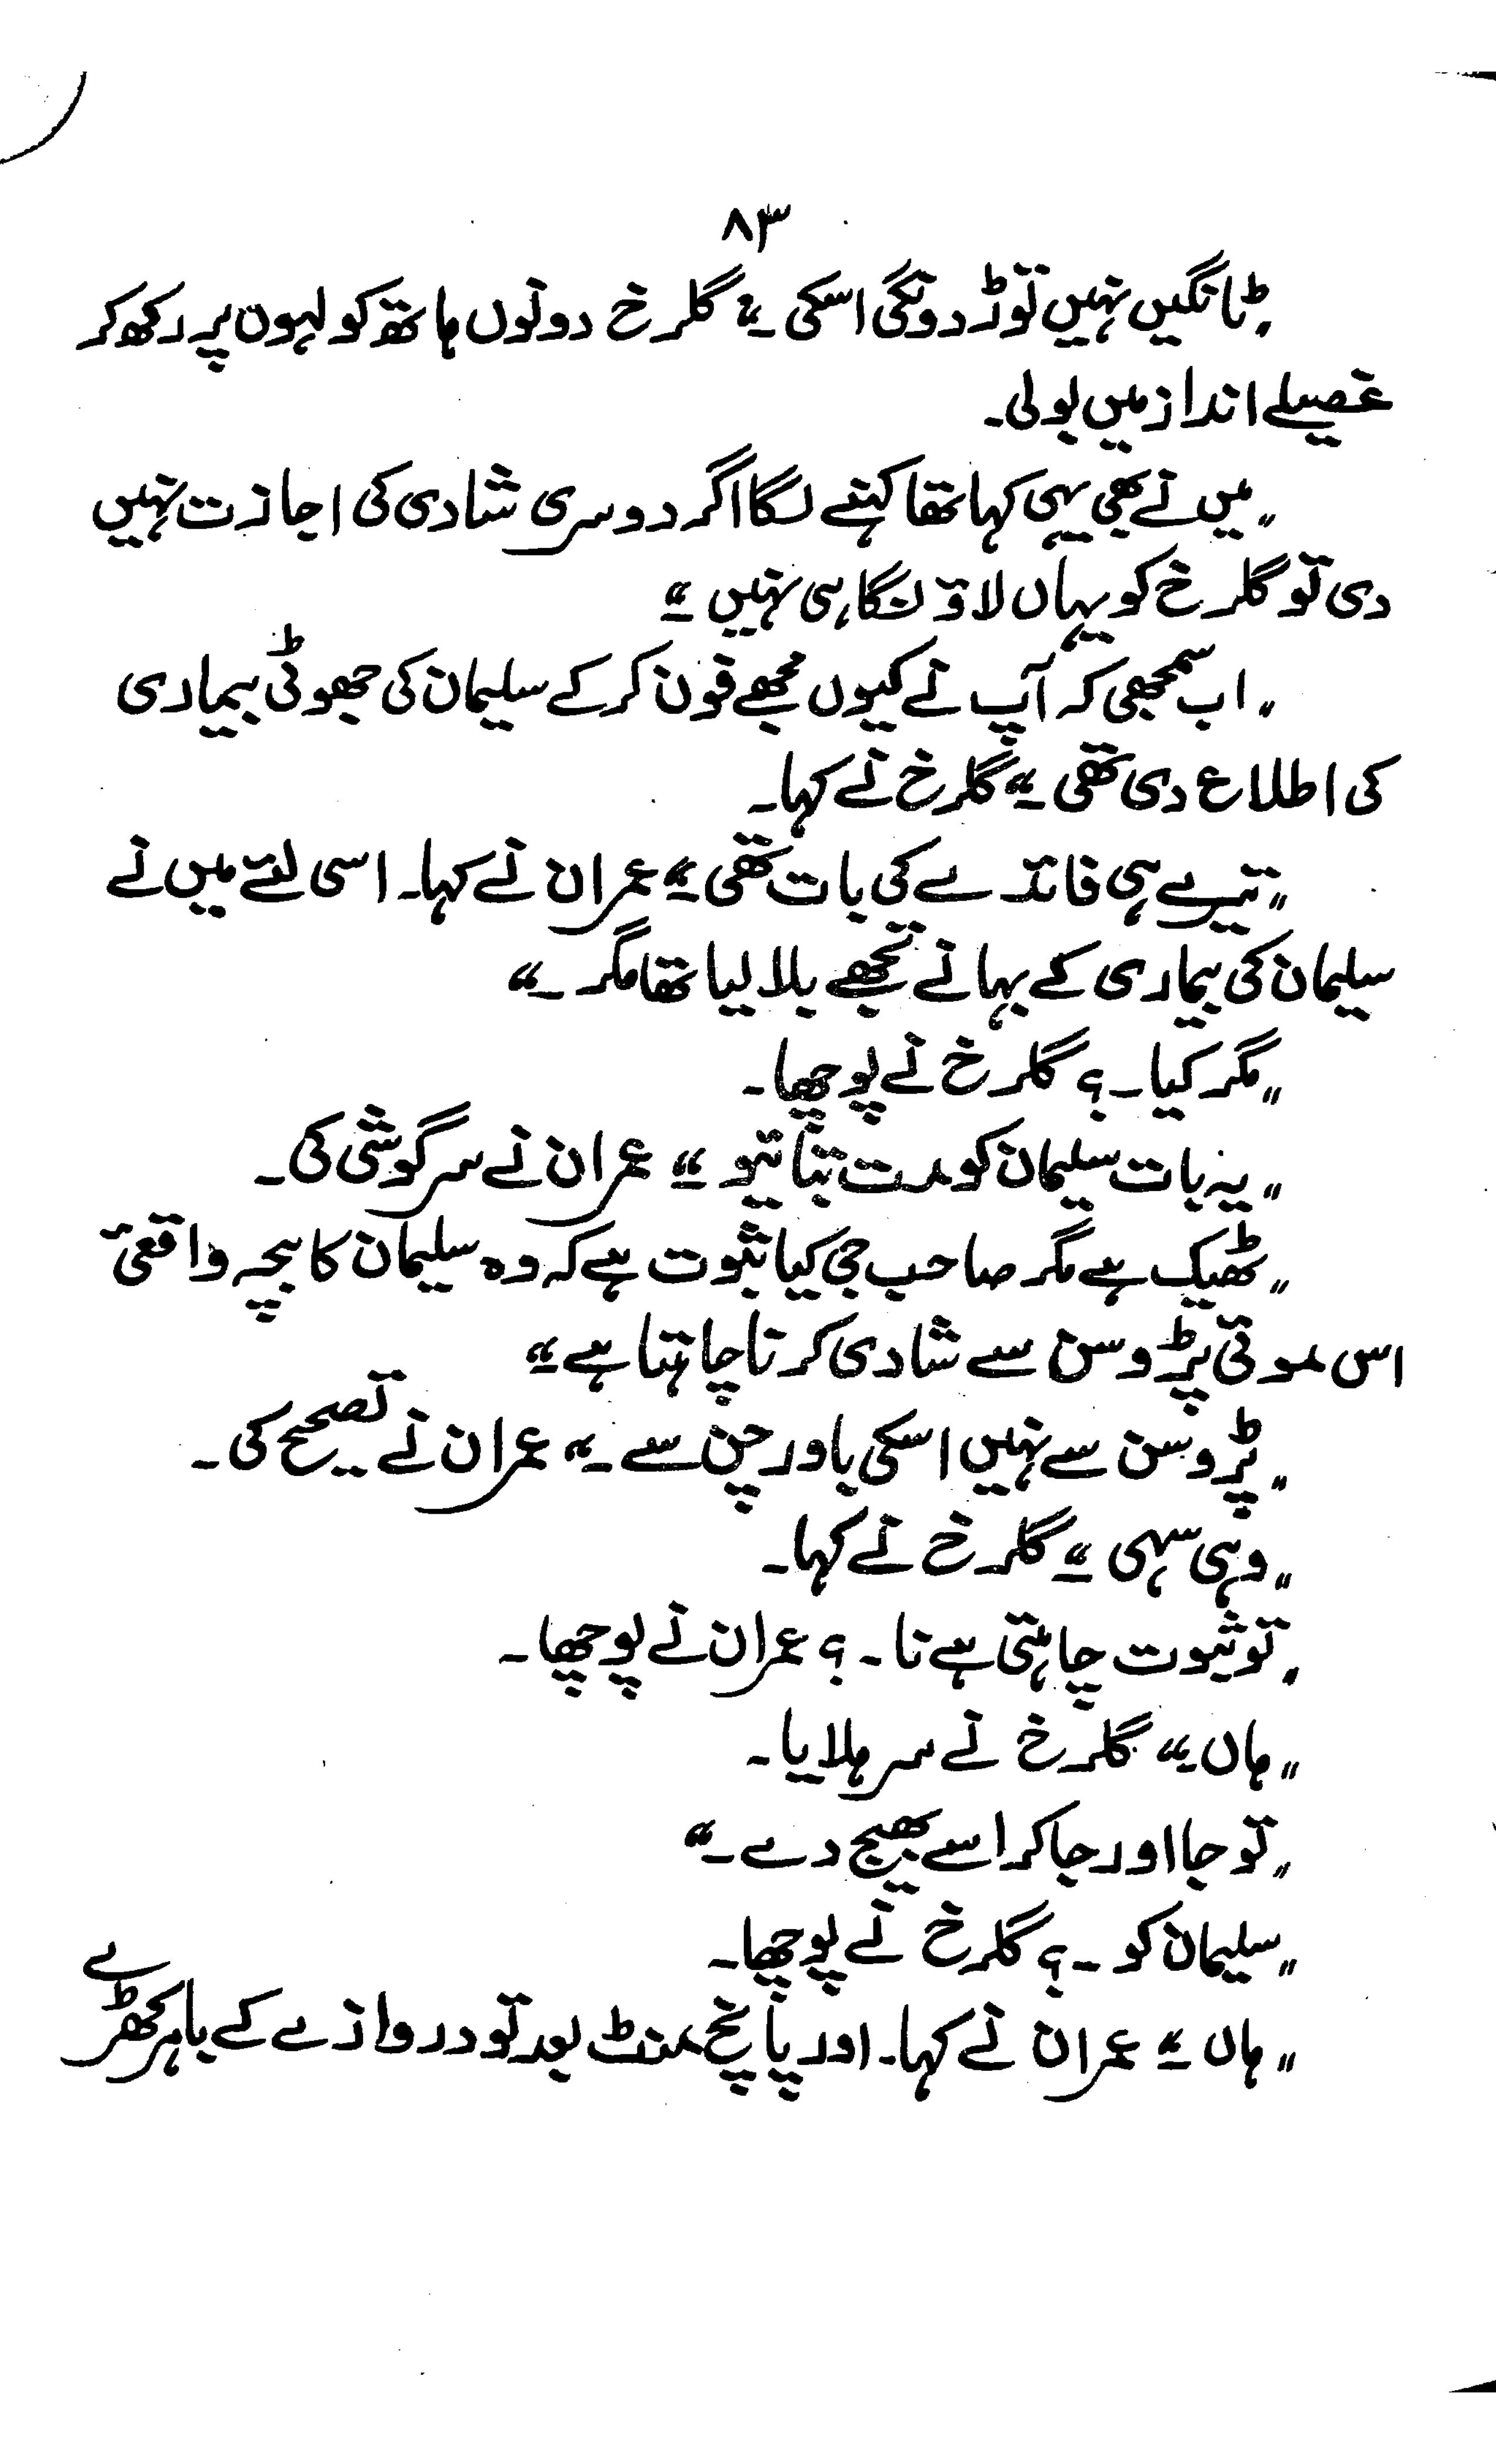 ۸۳
"ٹانگیں نہیں توڑ دونگی اسکی ۔" گلرخ دونوں ہاتھ کولہوں پر رکھ کر
غصیلے انداز میں بولی۔
"میں نے بھی یہی کہا تھا کہنے لگا اگر دوسری شادی کی اجازت نہیں
دی تو گلرخ کو یہاں لاؤنگا ہی نہیں ۔"
"اب سمجھی کہ آپ نے کیوں مجھے فون کر کے سلیمان کی جھوٹی بیماری
کی اطلاع دی تھی ۔" گلرخ نے کہا۔
"تیرے ہی فائدے کی بات تھی ۔" عمران نے کہا۔ اسی لئے میں نے
سلیمان کی بیماری کے بہانے تجھے بلا لیا تھا مگر ۔"
"مگر کیا۔؟ گلرخ نے پوچھا۔
"یہ بات سلیمان کو مت بتائیو ۔" عمران نے سرگوشی کی۔
"ٹھیک ہے مگر صاحب جی کیا ثبوت ہے کہ وہ سلیمان کا بچہ واقعئ
اس موٹی پڑوسن سے شادی کرنا چاہتا ہے ۔"
"پڑوسن سے نہیں اسکی باورچن سے ۔" عمران نے تصحیح کی۔
"وہی سہی ۔" گلرخ نے کہا۔
"تو ثبوت چاہتی ہے نا۔؟ عمران نے پوچھا۔
"ہاں ۔" گلرخ نے سر ہلایا۔
"تو جا اور جا کر اسے بھیج دے ۔"
"سلیمان کو ۔؟ گلرخ نے پوچھا۔
"ہاں ۔" عمران نے کہا۔ اور پانچ منٹ بعد تو دروازے کے باہر کھڑے